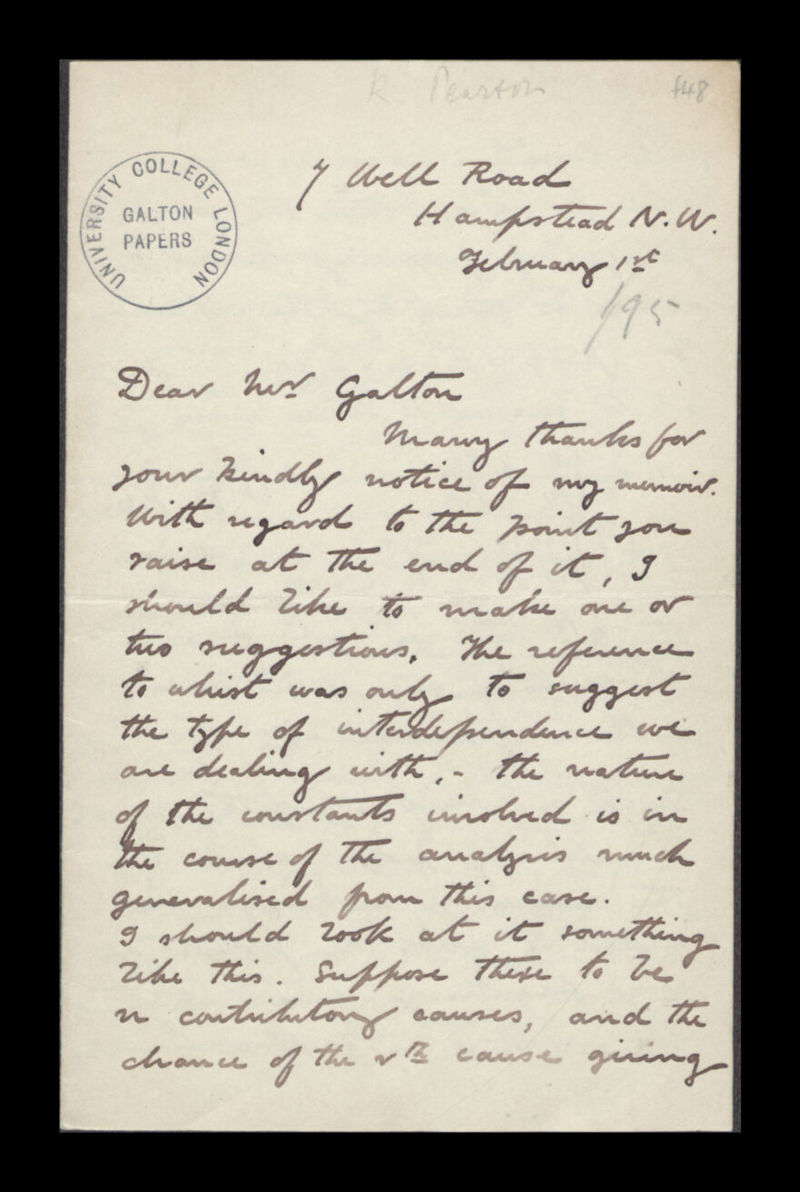 K Pearson
f48
UNIVERSITY COLLEGE LONDON
GALTON
PAPERS
7 Well Road
Hampstead N.W.
February 1st
/95
Dear Mr Galton
Many thanks for
your kindly notice of my memoir.
With regard to the point you
raise at the end of it, I
should like to make one or
two suggestions. The reference
to whist was only to suggest
the type of interdependence we
are dealing with, - the nature
of the constants involved is in
the course of the analysis much
generalised from this case.
I should look at it something
like this. Suppose there to be
n contributory causes, and the
chance of the rth cause giving